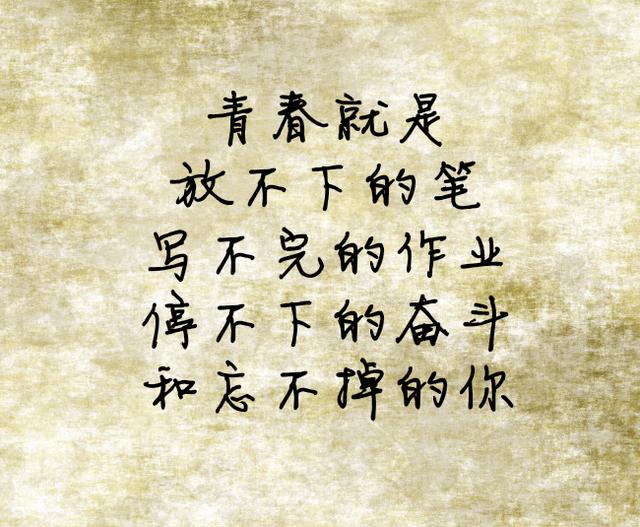 青春就是
放不下的笔
写不完的作业
停不下的奋斗
和忘不掉的你